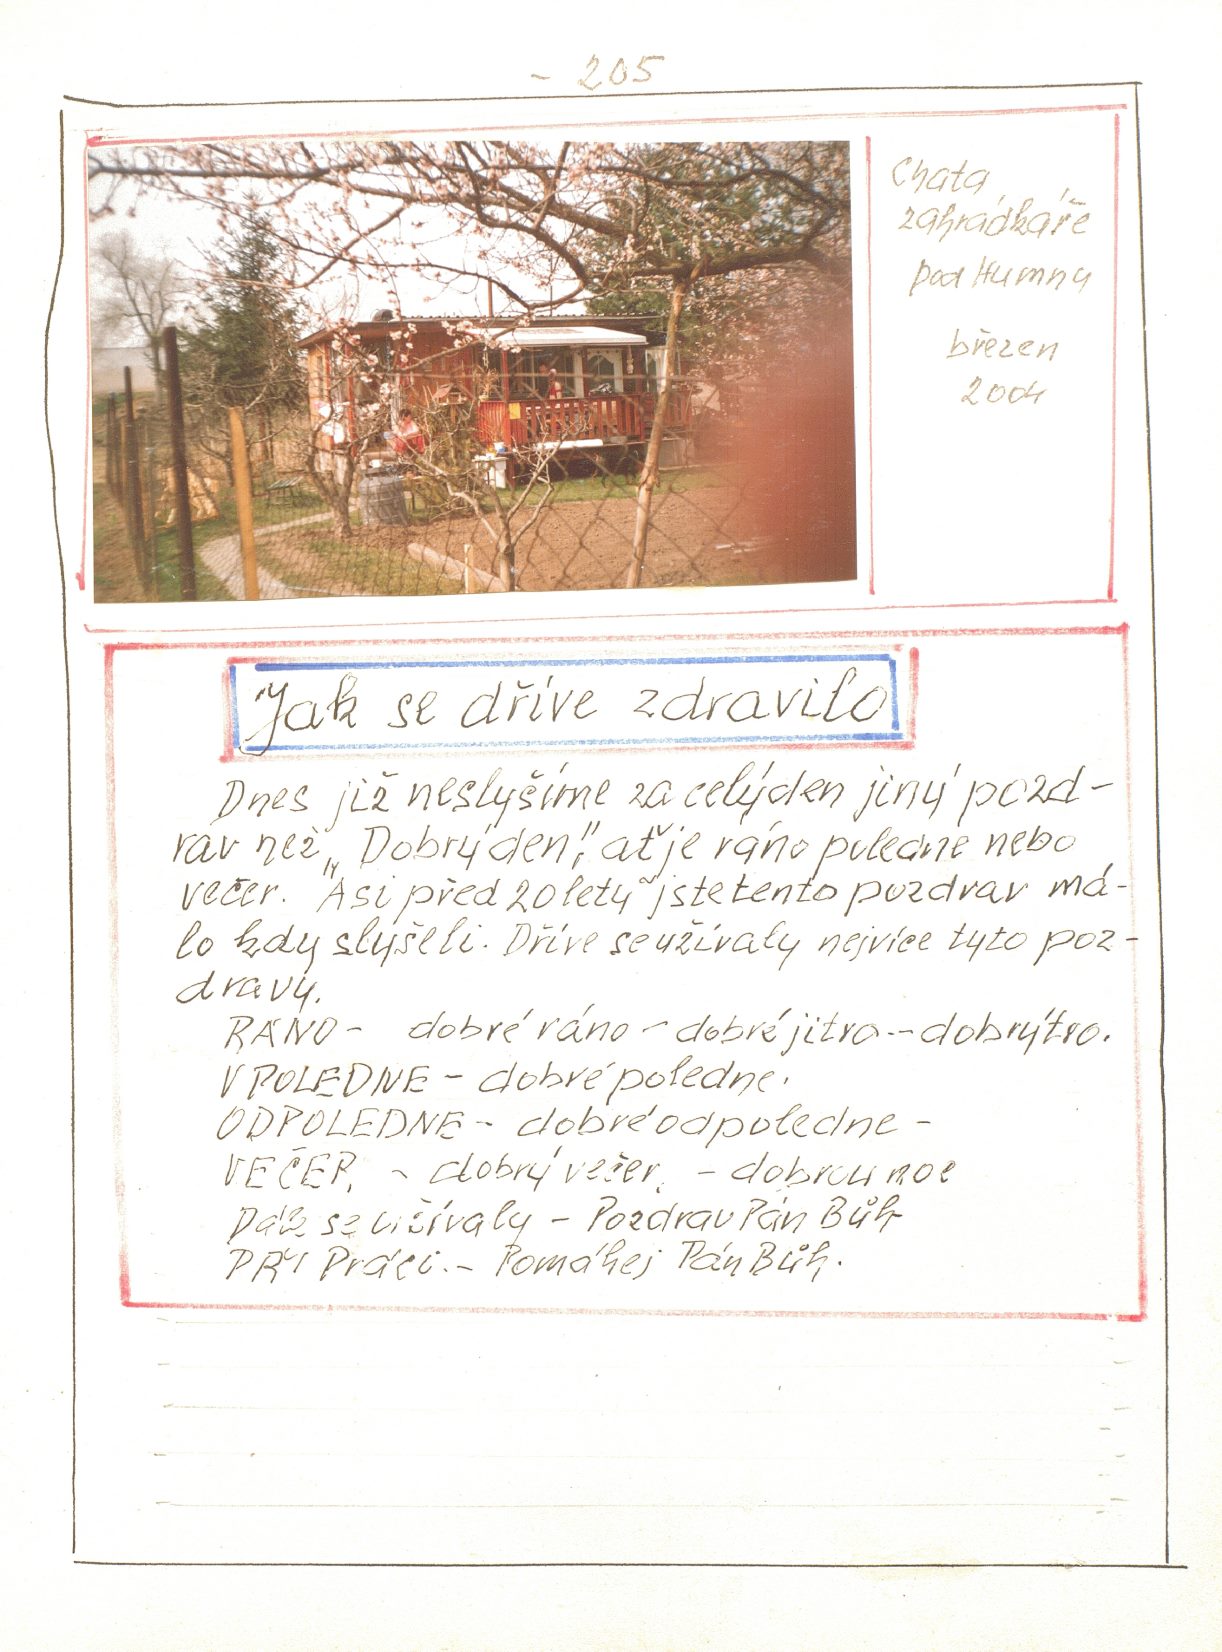 - 205
Chata
zahrádkáře
pod Humny
březen
2004
Jak se dříve zdravilo
Dnes již neslyšíme za celýden jiný pozd-
rav než „Dobrýden", ať je ráno poledne nebo
večer. Asi před 20 lety jste tento pozdrav má-
lo kdy slyšeli. Dříve se užívaly nejvíce tyto poz-
dravy.
RÁNO - dobré ráno - dobré jitro - dobrýtro.
V POLEDNE - dobré poledne.
ODPOLEDNE - dobré odpoledne -
VEČER. - dobrý večer. - dobrou noc
Dále se užívaly - Pozdrav Pán Bůh
PŘI Práci. - Pomáhej Pán Bůh.